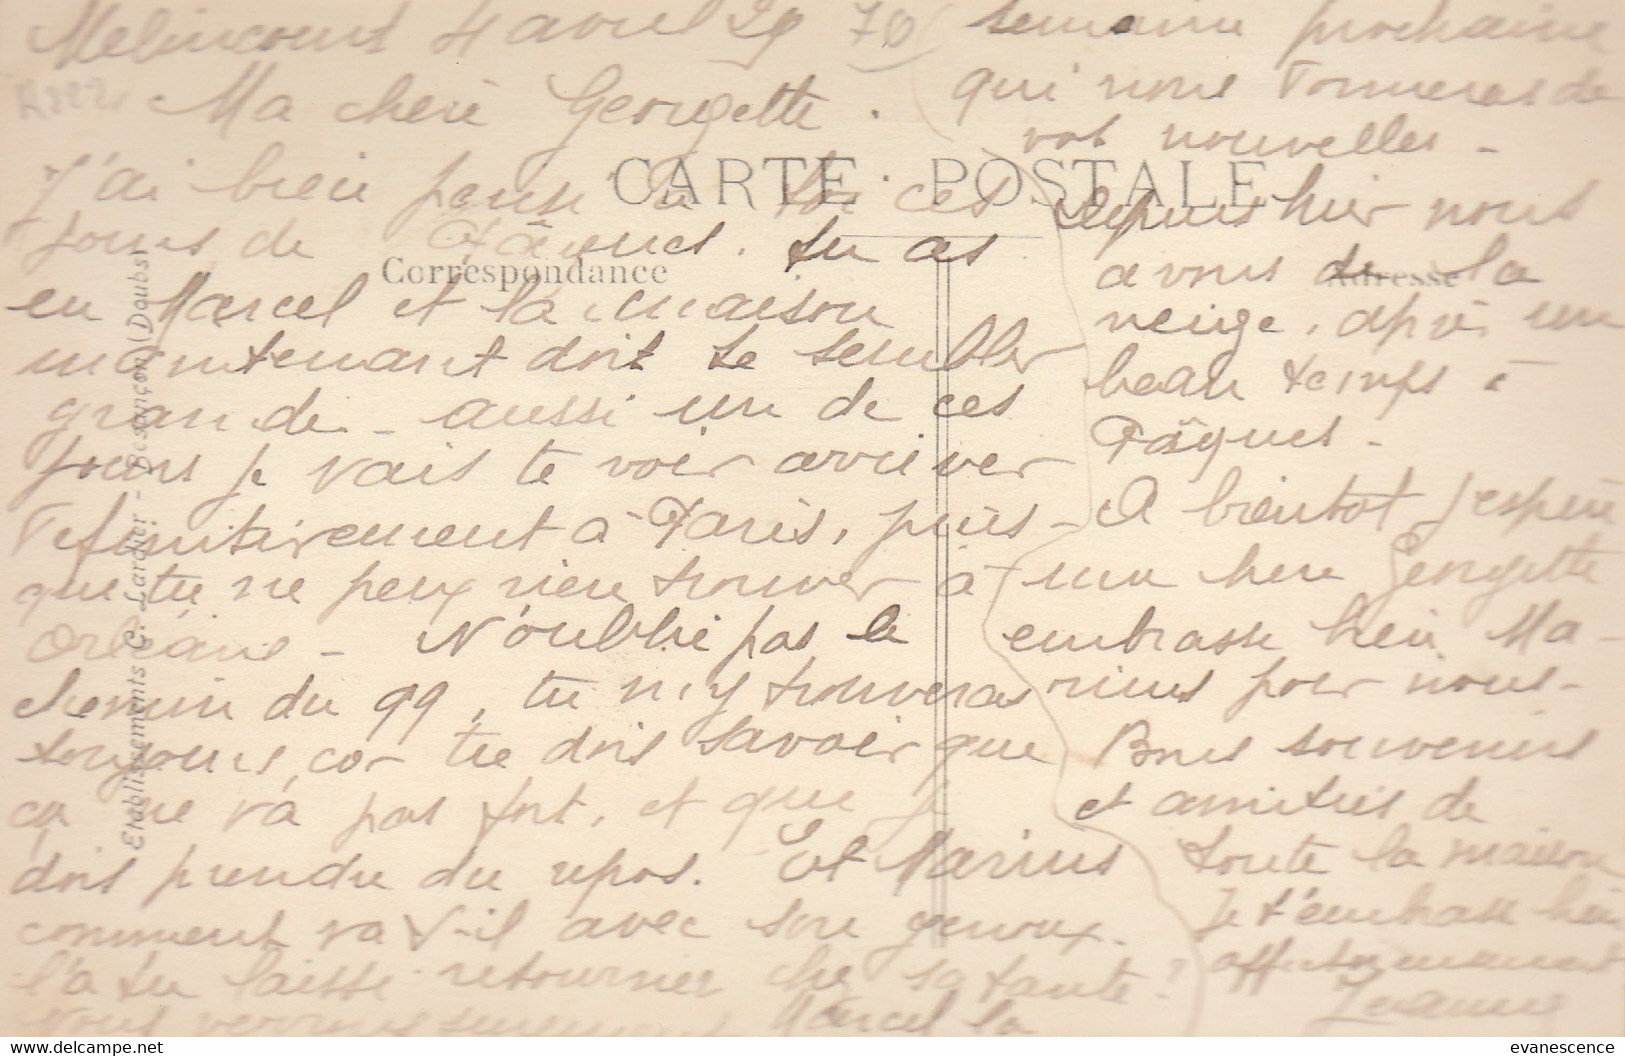 Melincourt 4 avril 29 70
Ma chère Georgette.
CARTE POSTALE
J'ai bien pensé à toi ces
jours de Pâques. tu as
Correspondance
eu Marcel et la maison
maintenant doit te sembler
grande - aussi un de ces
jours je vais te voir arriver
définitivement à Paris, puis-
que tu ne peux rien trouver à
Orléans - N'oublie pas le
chemin du 99, tu m'y trouveras
toujours, car tu dois savoir que
ça ne va pas fort, et que je
dois prendre du repos. Et Marius
comment va t-il avec son genoux.
l'a tu laissé retourner chez sa tante?
Nous verrons surement Marcel la
semaine prochaine
qui nous donneras de
vos nouvelles -
Depuis hier nous
avons de la
Adresse
neige, après un
beau temps à
Pâques -
A bientot j'espère
ma chère Georgette
embrasse bien Ma-
rius pour nous -
Bons souvenirs
et amitiés de
toute la maison
Je t'embrasse bien
affectueusement
Jeanne
Etablissements C. Lardier - Besançon (Doubs)
evanescence